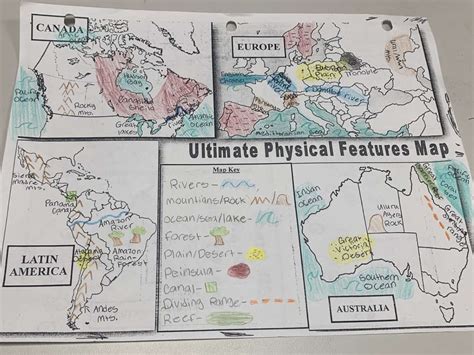 CANADA
Pacific
Ocean
Rocky
Mts.
Hudson
Bay
Canadian
Shield
Great
lakes
Atlantic
Ocean
EUROPE
European
Plain
Danube River
Mediterranean
Ultimate Physical Features Map
LATIN
AMERICA
Sierra
Madre Mts
Panama
Canal
Amazon
River
Amazon
Rain-
Forest
Desert
Andes
Mts.
Map Key
Rivers-
mountians/Rock-
ocean/sea/lake-
forest-
Plain/Desert-
Peinsula-
Canal-
Dividing Range-
Reef-
Indian
Ocean
Uluru
Ayers
Rock
Great
Victoria
Desert
Coral
Southern
Ocean
AUSTRALIA